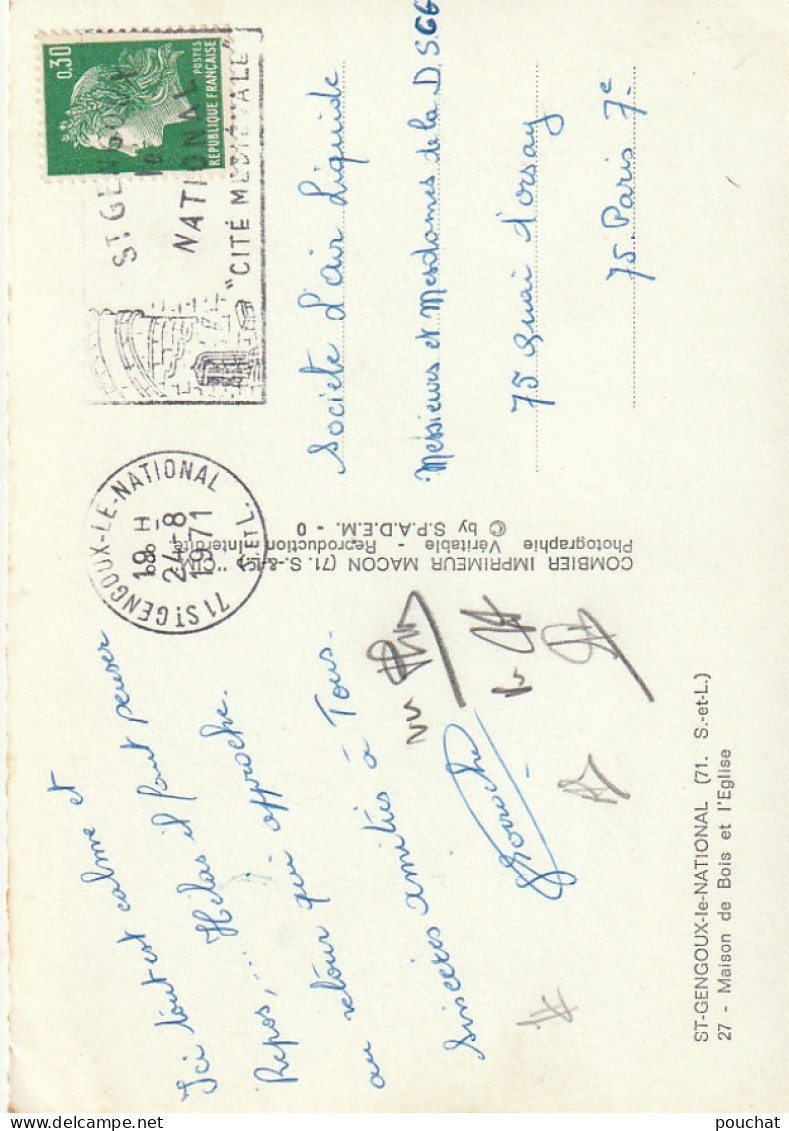 Ici tout est calme et
Repos,... Hélas il faut penser
au retour qui approche.
Sincères amitiés à Tous.
ST-GENGOUX-le-NATIONAL (71. S.-et-L.)
27 - Maison de Bois et l'Eglise
COMBIER IMPRIMEUR MACON (71. S.-&-L.) "CIM"
Photographie Véritable - Reproduction Interdite
© by S.P.A.D.E.M. - 0
71 ST GENGOUX-LE-NATIONAL
19 H
24-8
1971
S. ET L.
ST GENGOUX
le
NATIONAL
"CITÉ MÉDIÉVALE"
0,30
REPUBLIQUE FRANÇAISE
POSTES
Société d'air Liquide
Messieurs et Mesdames de la D.S.GG
75 Quai d'orsay
75. Paris 7e
vu
vu
pouchat